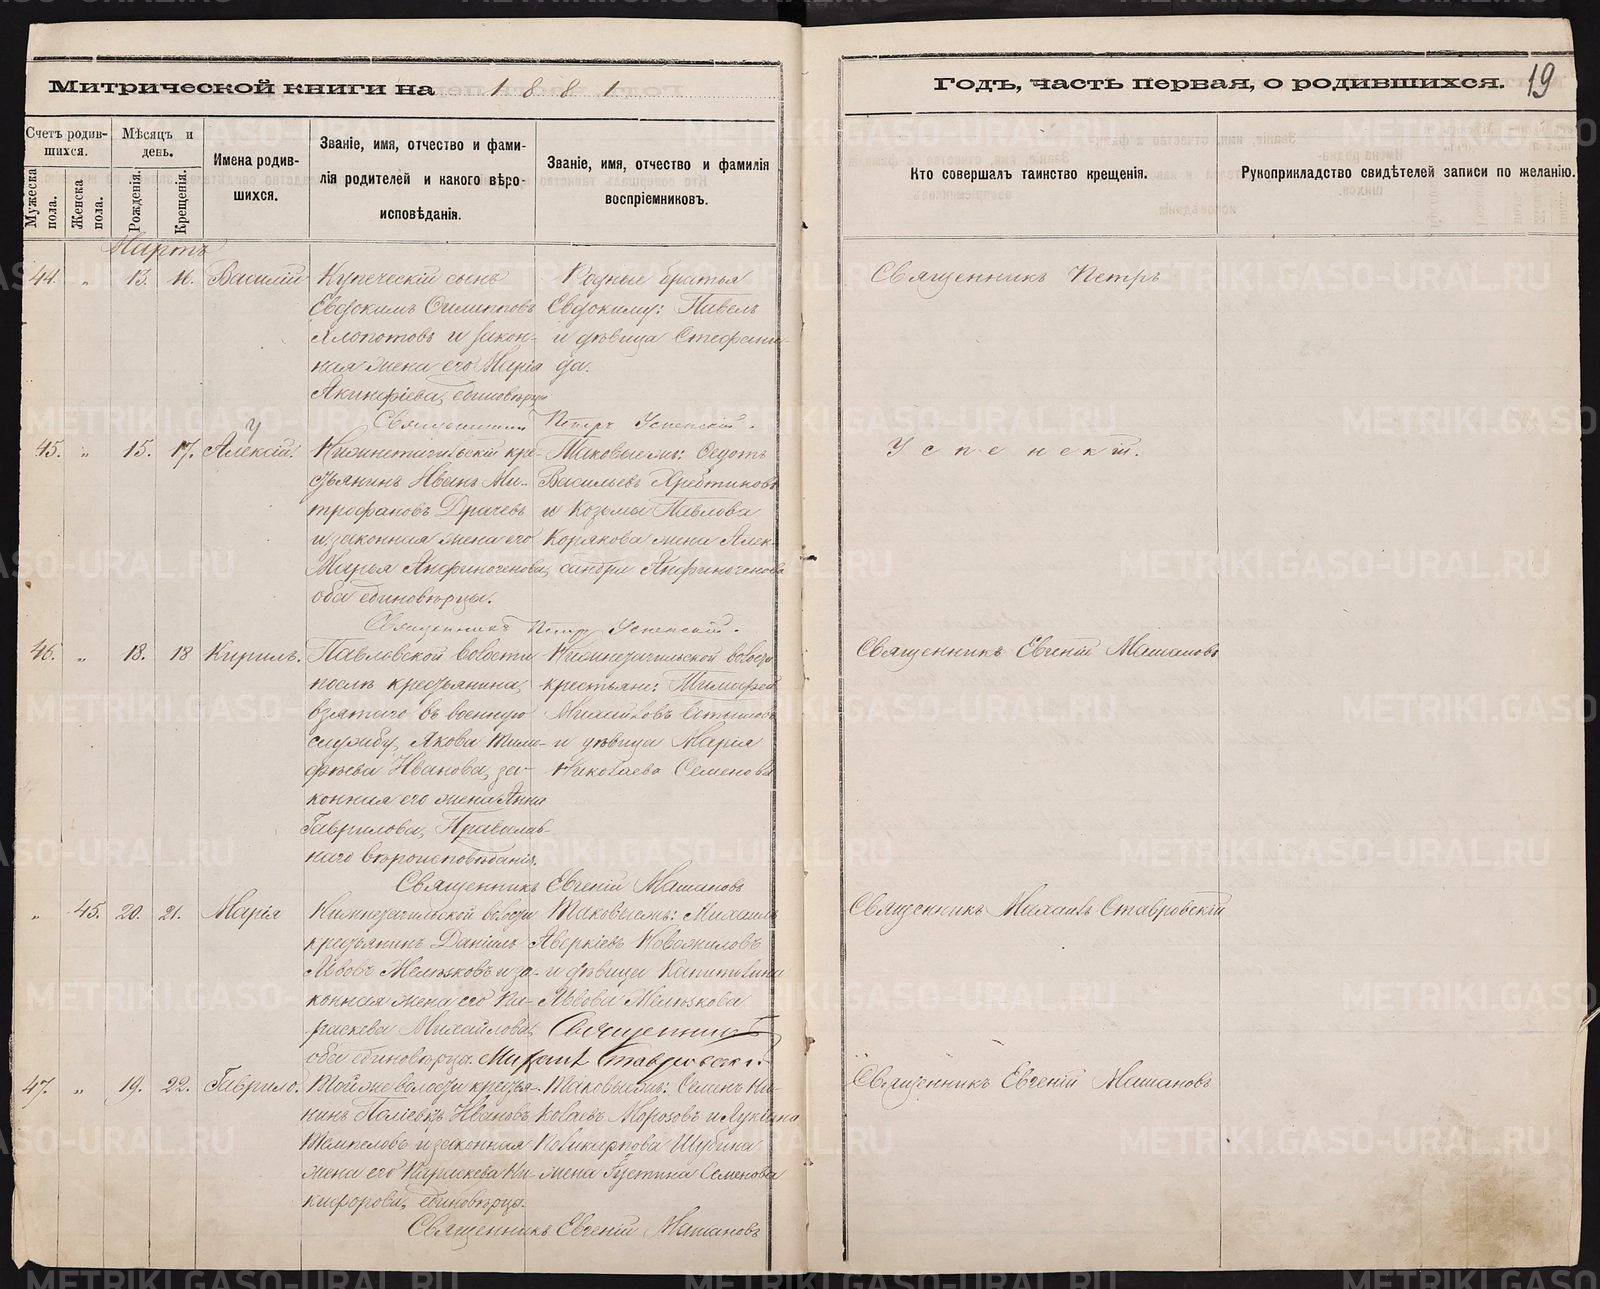 Митрической книги на 1881
Годъ, часть первая, о родившихся. 19
Счетъ родив-
шихся.
Мужеска
пола.
Женска
пола.
Мѣсяцъ и
день.
Рожденія.
Крещенія.
Имена родив-
шихся.
Званіе, имя, отчество и фами-
лія родителей и какого вѣро-
исповѣданія.
Званіе, имя, отчество и фамилія
воспріемниковъ.
Кто совершалъ таинство крещенія.
Рукоприкладство свидѣтелей записи по желанію.
Мартъ
44. „ 13. 16. Василій
Купеческій сынъ
Евдокимъ
и закон-
ная жена его Марія
Акинфіева, единовѣрцы
Родные братья
Евдокиму: Павелъ
и дѣвица Стефани-
да.
Священникъ Петръ
Священникъ Петръ Успенскій.
45. „ 15. 17. Алексій
Нижнетагильскій кре-
стьянинъ Иванъ Ми-
трофановъ Драчевъ
и законная жена его
Марья Анфиногенова,
оба единовѣрцы.
Таковыежъ: Ѳедотъ
Васильевъ Хребтиковъ
и Козьмы Павлова
Корякова жена Алек-
сандра Анфиногенова
Успенскій.
Священникъ Петръ Успенскій.
46. „ 18. 18 Кирилъ.
Павловской волости
послѣ крестьянина,
взятаго въ военную
службу, Якова Тимо-
фѣева Иванова, за-
конная его жена Анна
Гаврилова, Православ-
наго вѣроисповѣданія.
Нижнетагильской волости
крестьяне: Тимофей
Михаиловъ
и дѣвица Марія
Николаева Семенова
Священникъ Евгеній Машановъ
Священникъ Евгеній Машановъ
„ 45. 20. 21. Марія
Нижнетагильской волости
крестьянинъ Даніилъ
Львовъ Мелѣзковъ и за-
конная жена его Па-
раскева Михайлова,
оба единовѣрцы.
Таковыежъ: Михаилъ
Аверкіевъ Новожиловъ
и дѣвица Капитолина
Львова Мелѣзкова
Священникъ
Михаилъ Ставровскій.
Священникъ Михаилъ Ставровскій
47. „ 19. 22. Гаврило.
Той же волости кресть-
нинъ Иановъ
и законная
жена его Параскева Ни-
кифорова, единовѣрцы.
Таковыежъ: Семенъ Ни-
колаевъ Морозовъ и Лукіяна
Поликарпова
жена Густина Семенова
Священникъ Евгеній Машановъ
Священникъ Евгеній Машановъ
METRIKI.GASO-URAL.RU